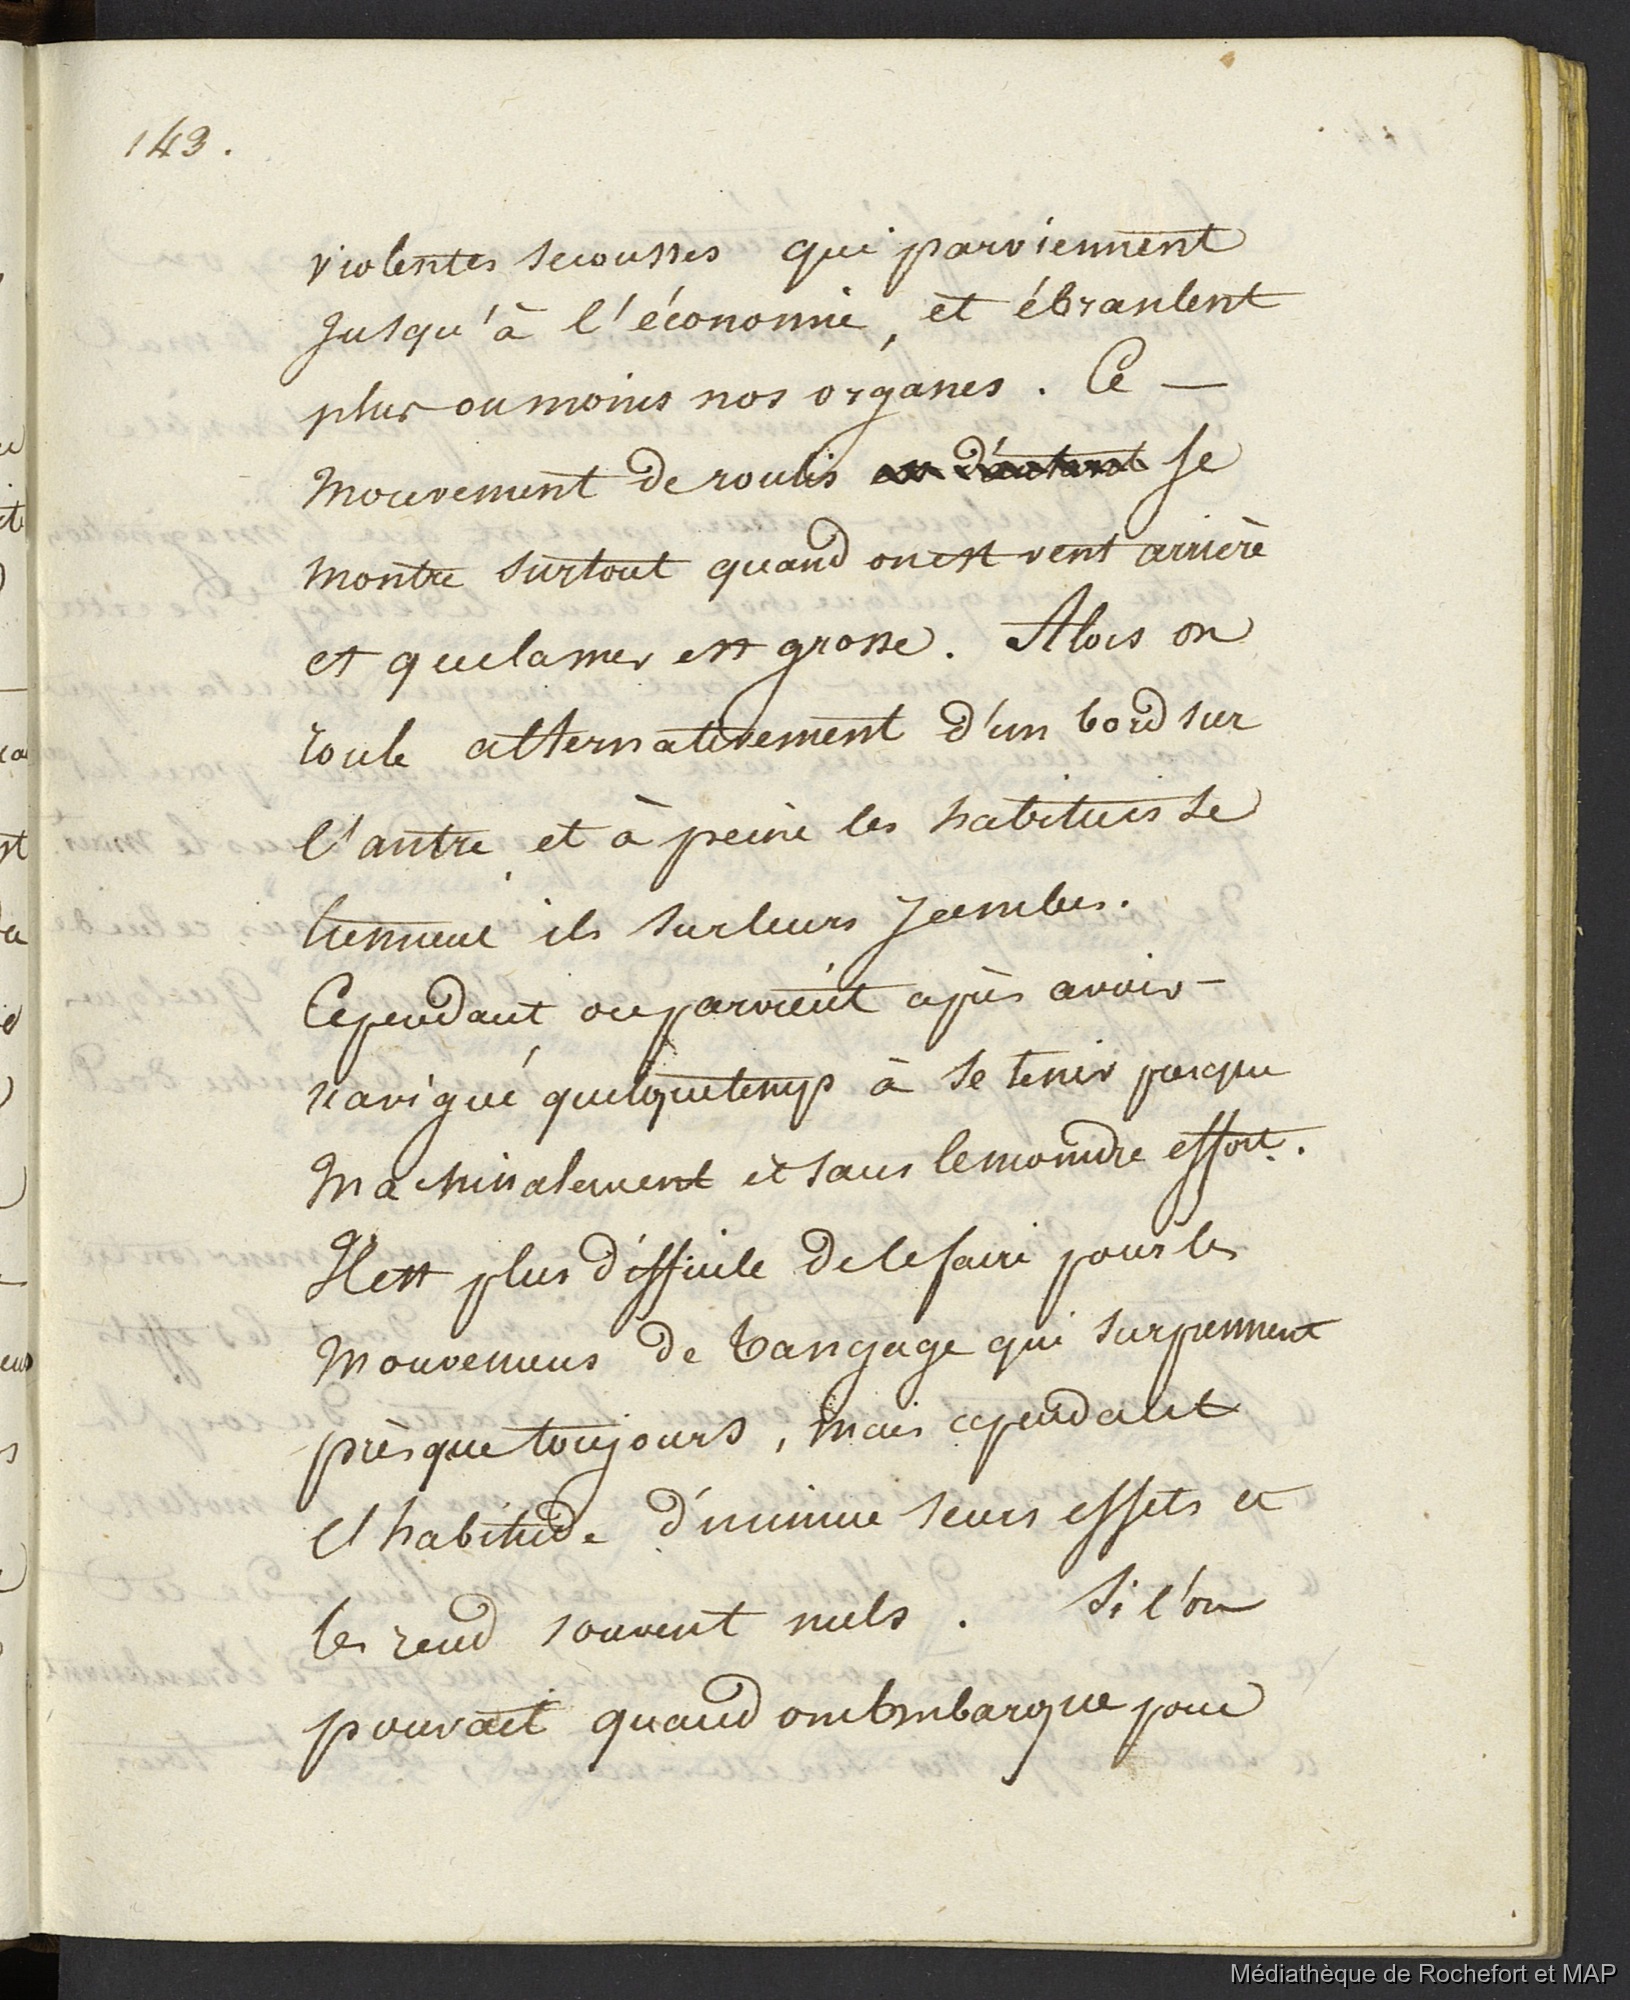 143.
violentes secousses qui parviennent
jusqu'à l'économie, et ébranlent
plus ou moins nos organes. Ce —
mouvement de roulis est d'autant se
montre surtout quand on est vent arrière
et que la mer est grosse. Alors on
roule alternativement d'un bord sur
l'autre et à peine les habitués se
tiennent ils sur leurs jambes.
Cependant on parvient après avoir —
navigué quelque temps à se tenir presque
machinalement et sans le moindre effort.
Il est plus difficile de le faire pour les
mouvemens de tangage qui surprennent
prèsque toujours, mais cependant
l'habitude diminue leurs effets et
les rend souvent nuls. Si l'on
pouvait quand on embarque pour
Médiathèque de Rochefort et MAP